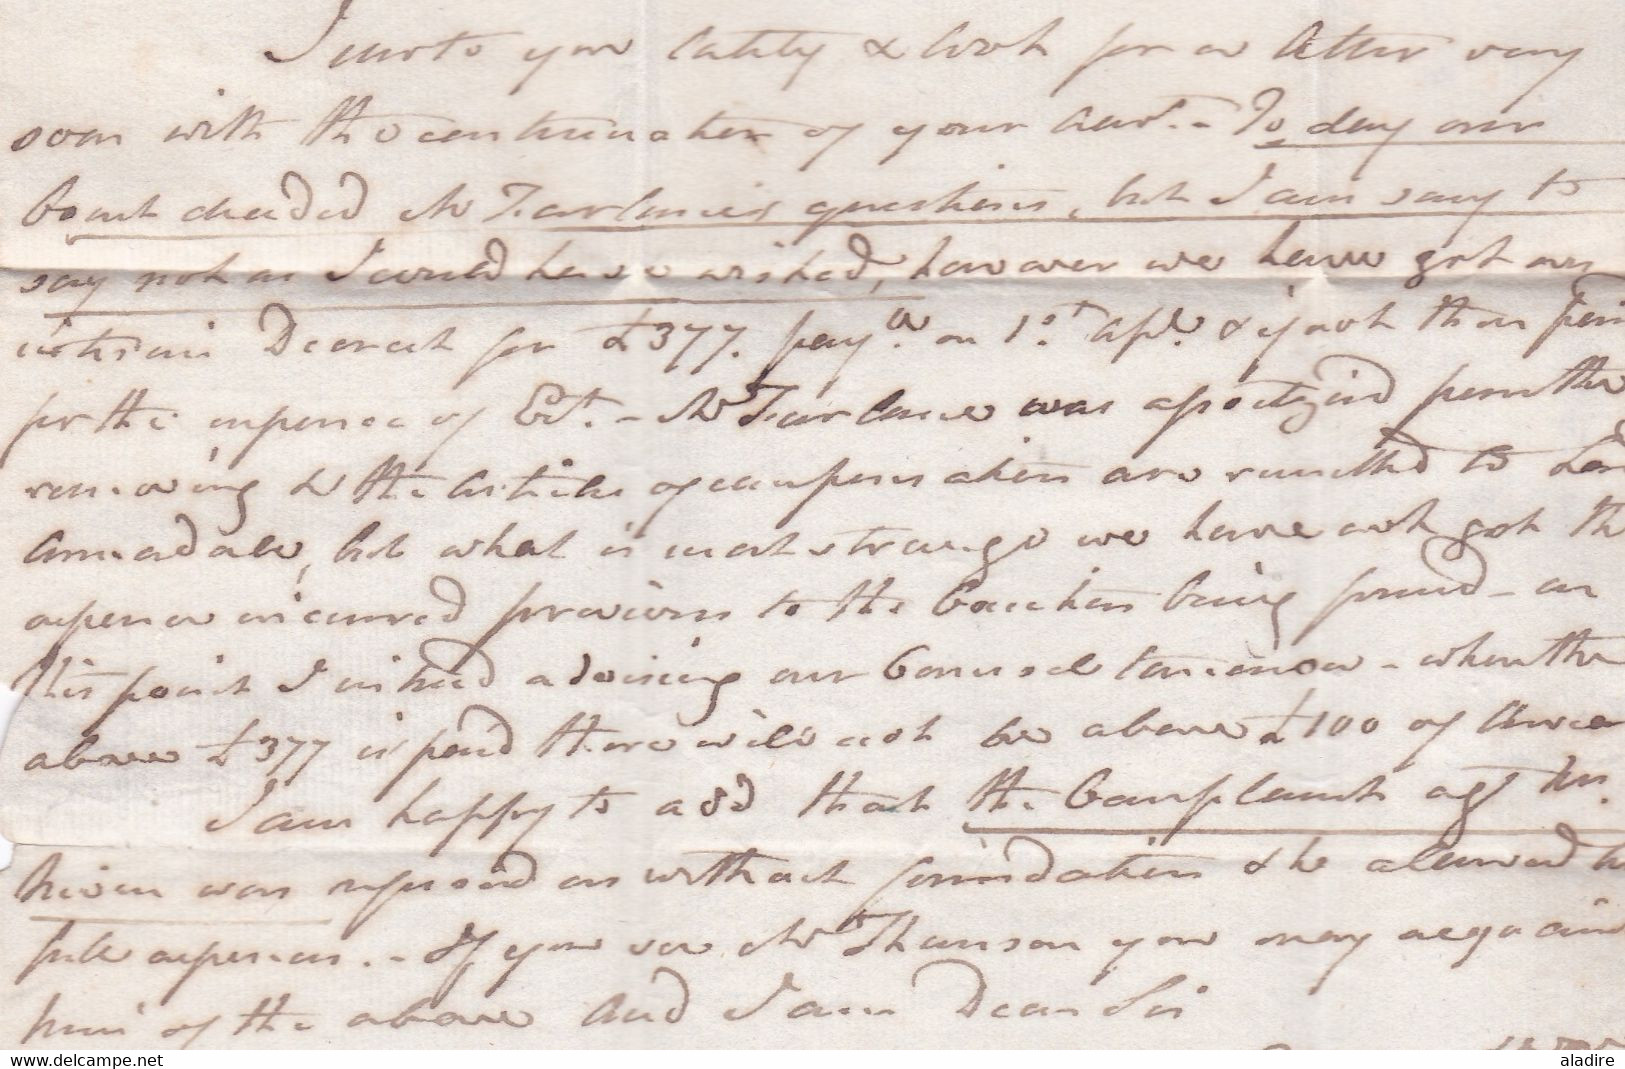 I wrote you lately & look for a letter very
soon with the continuation of your . - To day our
Court decided Mr questions, but I am sory to
say not as I could have wished, however we have got an
interim Decreet for £377. pay.a on 1.st Apl. & if not then
for the expence of Ext. - Mr was
removing & the articles of compensation are remitted to
Annadale, but what is most strange we have not got the
expence incurred previous to the being found - on
this point I intend advising our Counsel tomorrow - when the
above £377 is paid there will not be above £100 of
I am happy to add that the Complaint agt
was refused as without foundation & he allowed
full expences. - If you see Mr Thomson you may
him of the above and I am Dear Sir
www.delcampe.net
aladire